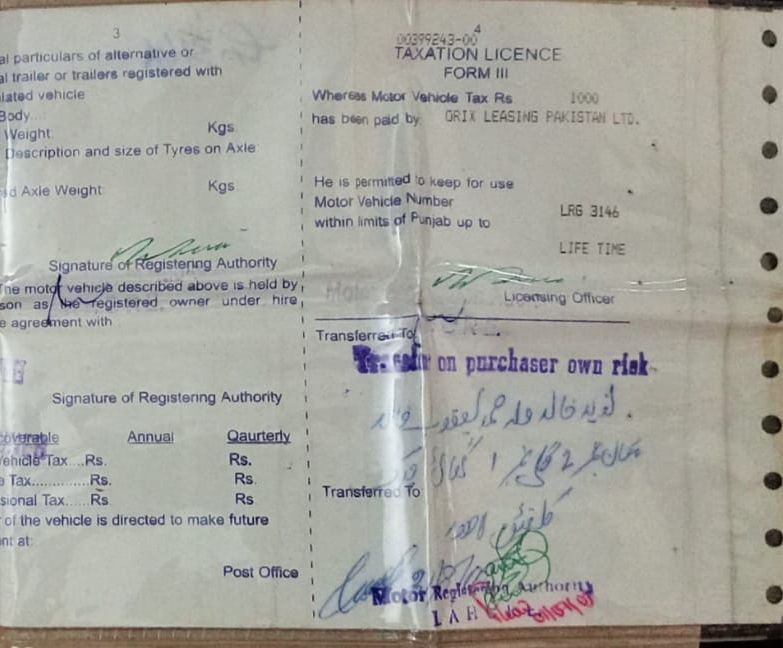 3
al particulars of alternative or
al trailer or trailers registered with
lated vehicle
Body...
Weight: Kgs
Description and size of Tyres on Axle:
ed Axle Weight: Kgs
Signature of Registering Authority
The motor vehicle described above is held by
son as the registered owner under hire
e agreement with
Signature of Registering Authority
coverable Annual Qaurterly
ehicle Tax....Rs. Rs.
e Tax.............Rs. Rs.
sional Tax.....Rs. Rs
of the vehicle is directed to make future
nt at:
Post Office
4
00399243-00
TAXATION LICENCE
FORM III
Whereas Motor Vehicle Tax Rs 1000
has been paid by: ORIX LEASING PAKISTAN LTD.
He is permitted to keep for use
Motor Vehicle Number LRG 3146
within limits of Punjab up to
LIFE TIME
Licensing Officer
Transferred To
on purchaser own risk
خالد ولد محمد یعقوب
Transferred To
Motor Registering Authority